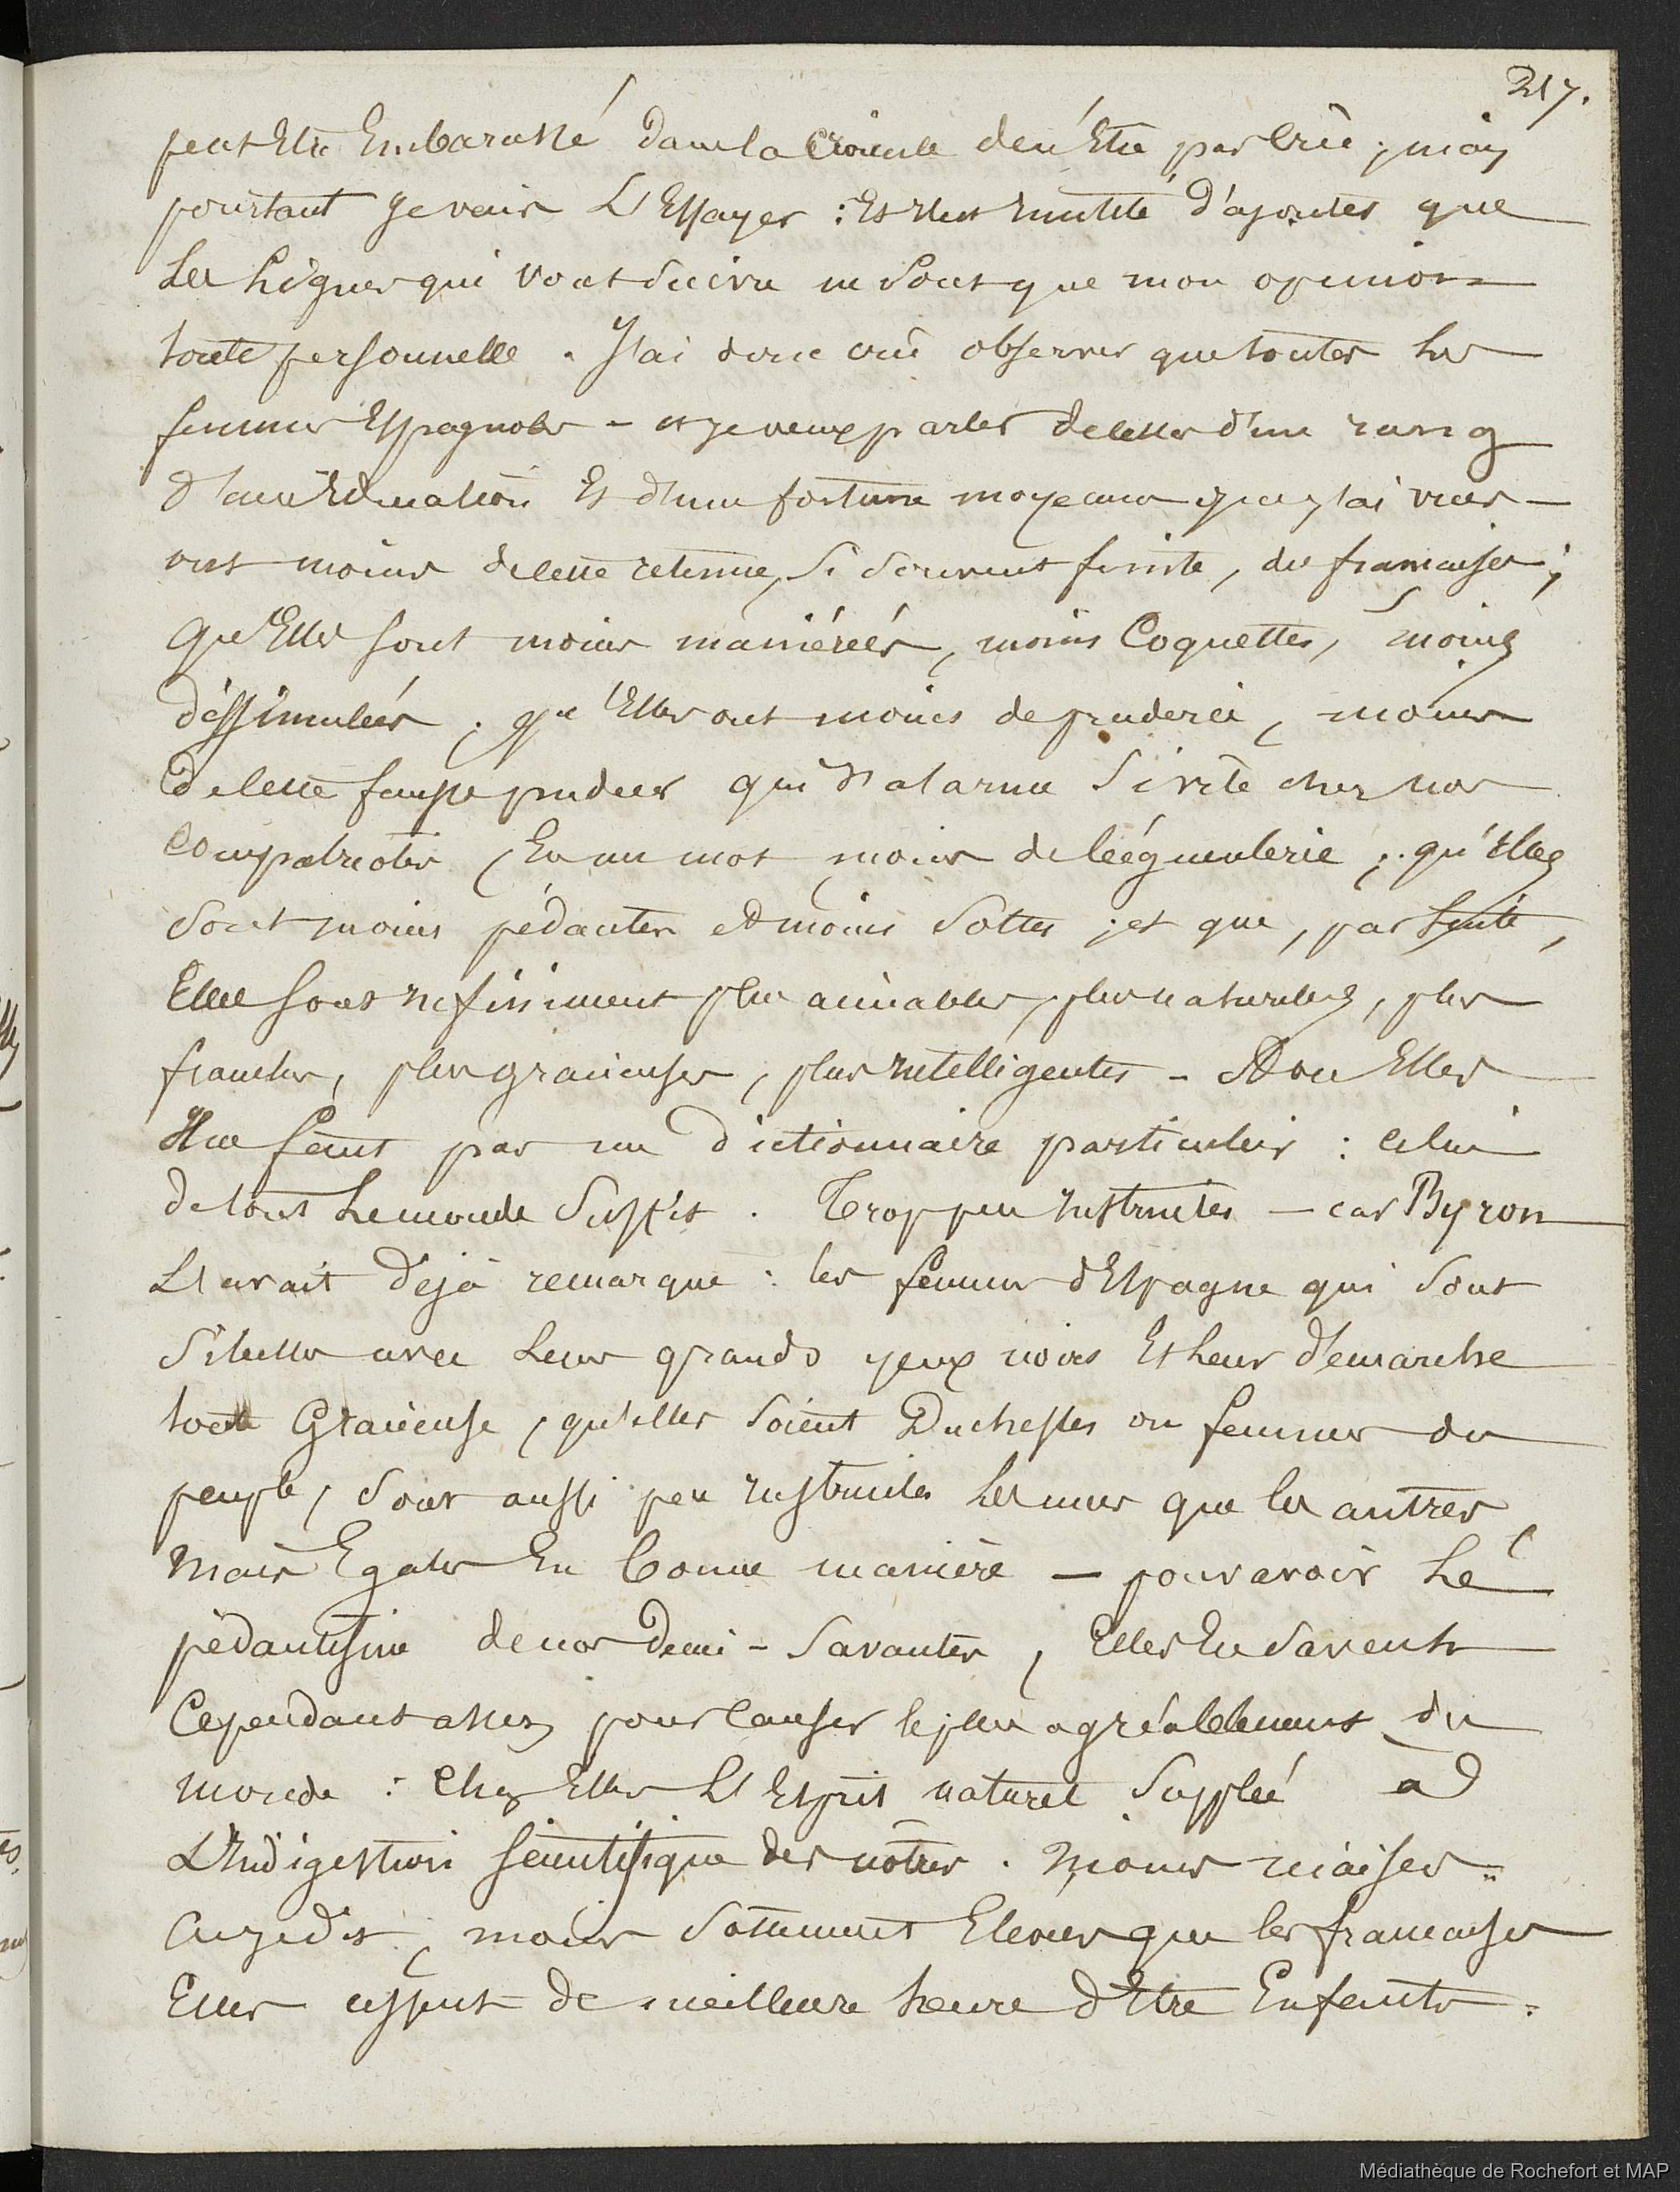 217.
peut Etre Embarassé dans la crainte de n'Etre pas crû ; mais
pourtant je vais L'Essayer : Est il inutile d'ajouter que
Les Lignes qui vont suivre ne sont que mon opinion
toute personnelle . J'ai donc crû observer que toutes les
femmes Espagnoles - et je veux parler de celles d'un rang
d'une Education Et d'une fortune moyenne que j'ai vues -
ont moins de cette retenue, si souvent feinte, des françaises ;
qu'Elles sont moins maniérées, moins Coquettes, moins
dissimulées ; qu'Elles ont moins de pruderie, moins
de cette fausse pudeur qui s'alarme si vite chez nos
compatriotes, En un mot moins de bégueulerie ; qu'Elles
sont moins pédantes et moins sottes ; et que, par suite,
Elles sont infiniment plus aimables, plus naturelles, plus
franches, plus gracieuses, plus intelligentes - Avec Elles
il ne faut pas un dictionnaire particulier : celui
de tout Le monde suffit . Trop peu instruites - car Byron
L'avait déjà remarqué : les femmes d'Espagne qui sont
si belles avec Leurs grands yeux noirs Et Leur démarche
toute Gracieuse, qu'elles soient Duchesses ou femmes du
peuple, sont aussi peu instruites Les unes que les autres
mais Egales En bonne manière - pour avoir Le
pédantisme de nos Demi-Savantes, Elles En savent
Cependant assez pour causer le plus agréablement du
monde : chez Elles L'Esprit naturel supplée à
L'Indigestion scientifique des nôtres . Moins niaises -
ai-je dit, moins sottement Elevées que les françaises
Elles cessent de meilleure heure d'Etre Enfants .
Médiathèque de Rochefort et MAP